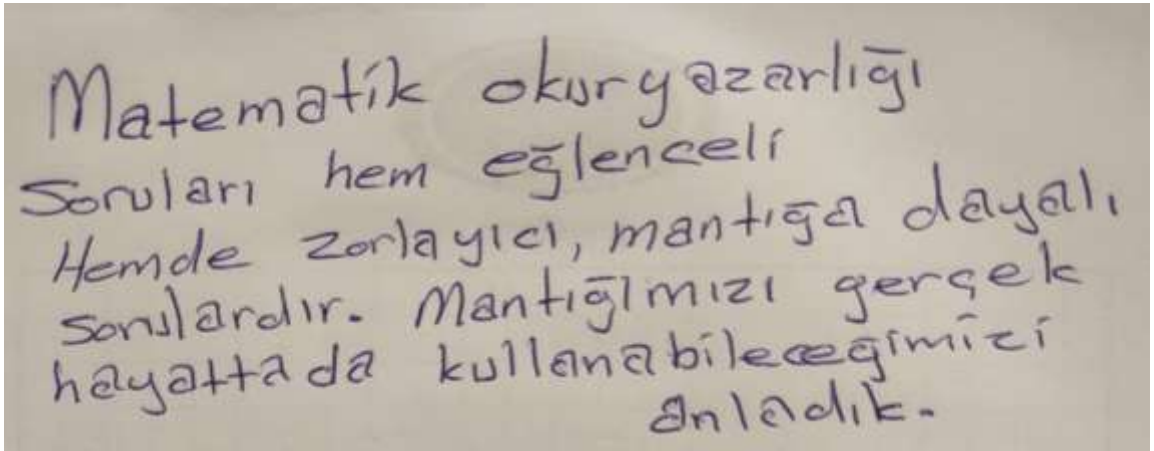 Matematik okuryazarlığı
Soruları hem eğlenceli
Hemde zorlayıcı, mantığa dayalı
sorulardır. Mantığımızı gerçek
hayattada kullanabileceğimizi
anladık.